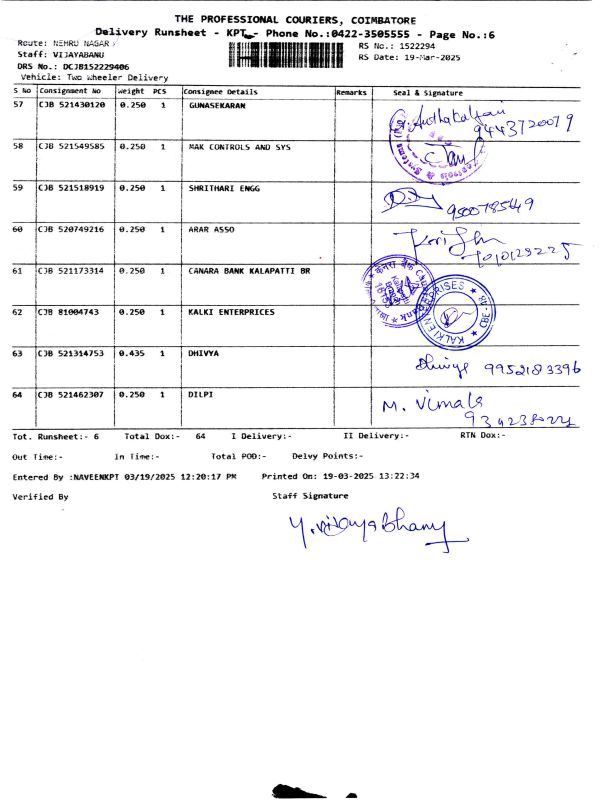 THE PROFESSIONAL COURIERS, COIMBATORE
Delivery Runsheet - KPT - Phone No.:0422-3505555 - Page No.:6
Route: NEHRU NAGAR
Staff: VIJAYABANU
DRS No.: DCJB152229406
Vehicle: Two Wheeler Delivery
RS No.: 1522294
RS Date: 19-Mar-2025
S No Consignment No Weight PCS Consignee Details Remarks Seal & Signature
57 CJB 521430120 0.250 1 GUNASEKARAN 9443720079
58 CJB 521549585 0.250 1 MAK CONTROLS AND SYS
59 CJB 521518919 0.250 1 SHRITHARI ENGG
60 CJB 520749216 0.250 1 ARAR ASSO
61 CJB 521173314 0.250 1 CANARA BANK KALAPATTI BR
62 CJB 81004743 0.250 1 KALKI ENTERPRICES KALKI ENTERPRISES CBE-48
63 CJB 521314753 0.435 1 DHIVYA Dhivya 9952183396
64 CJB 521462307 0.250 1 DILPI M. Vimala
Tot. Runsheet:- 6 Total Dox:- 64 I Delivery:- II Delivery:- RTN Dox:-
Out Time:- In Time:- Total POD:- Delvy Points:-
Entered By :NAVEENKPT 03/19/2025 12:20:17 PM Printed On: 19-03-2025 13:22:34
Verified By Staff Signature